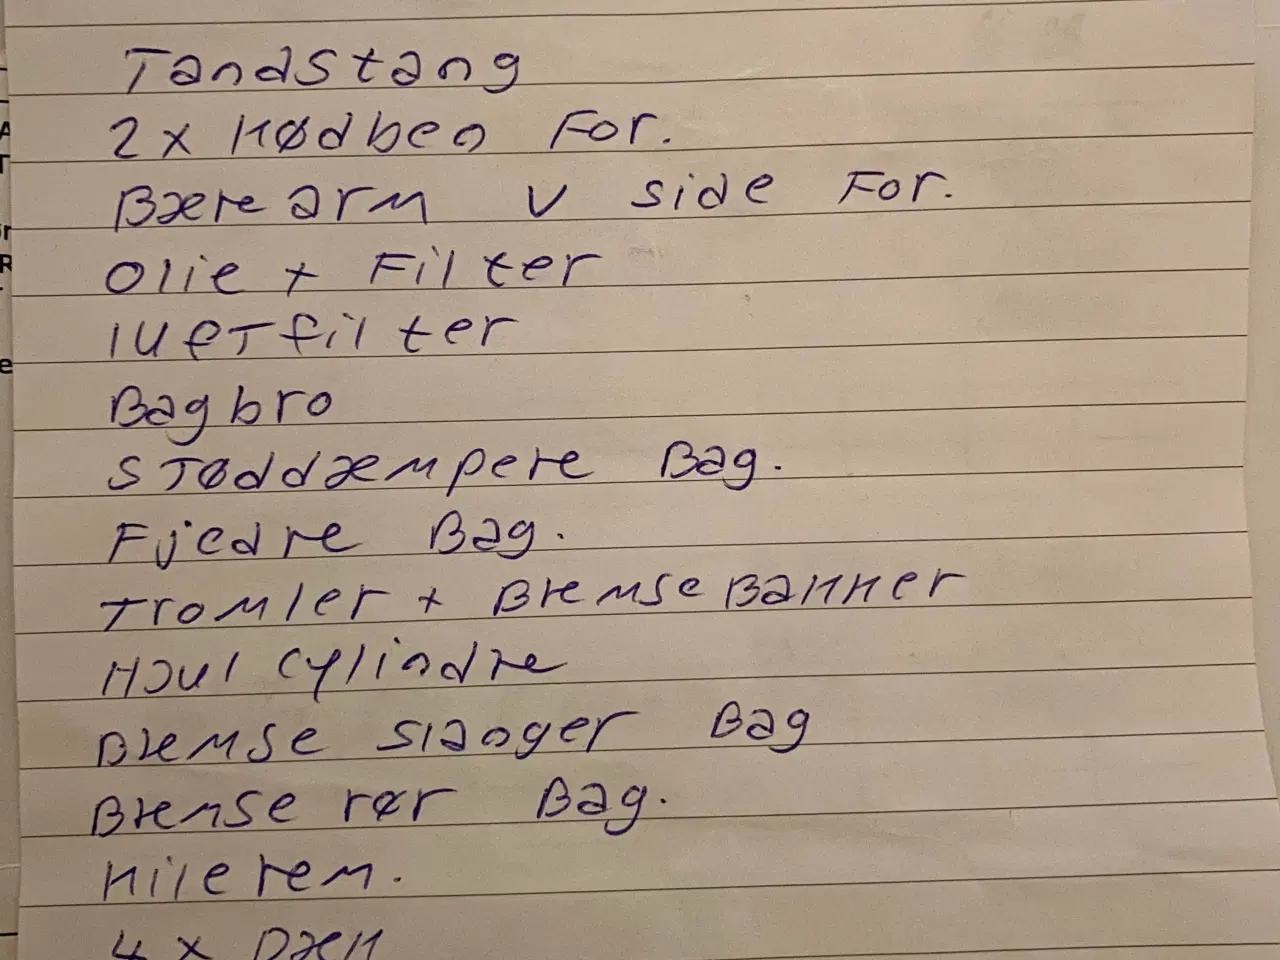 Tandstang
2 x Kødben For.
Bærearm V side For.
Olie + Filter
luftfilter
Bagbro
Støddæmpere Bag.
Fjedre Bag.
Tromler + BremseBakker
Hjul cylindre
Bremse slanger Bag
Bremse rør Bag.
Kilerem.
4 x Dæk